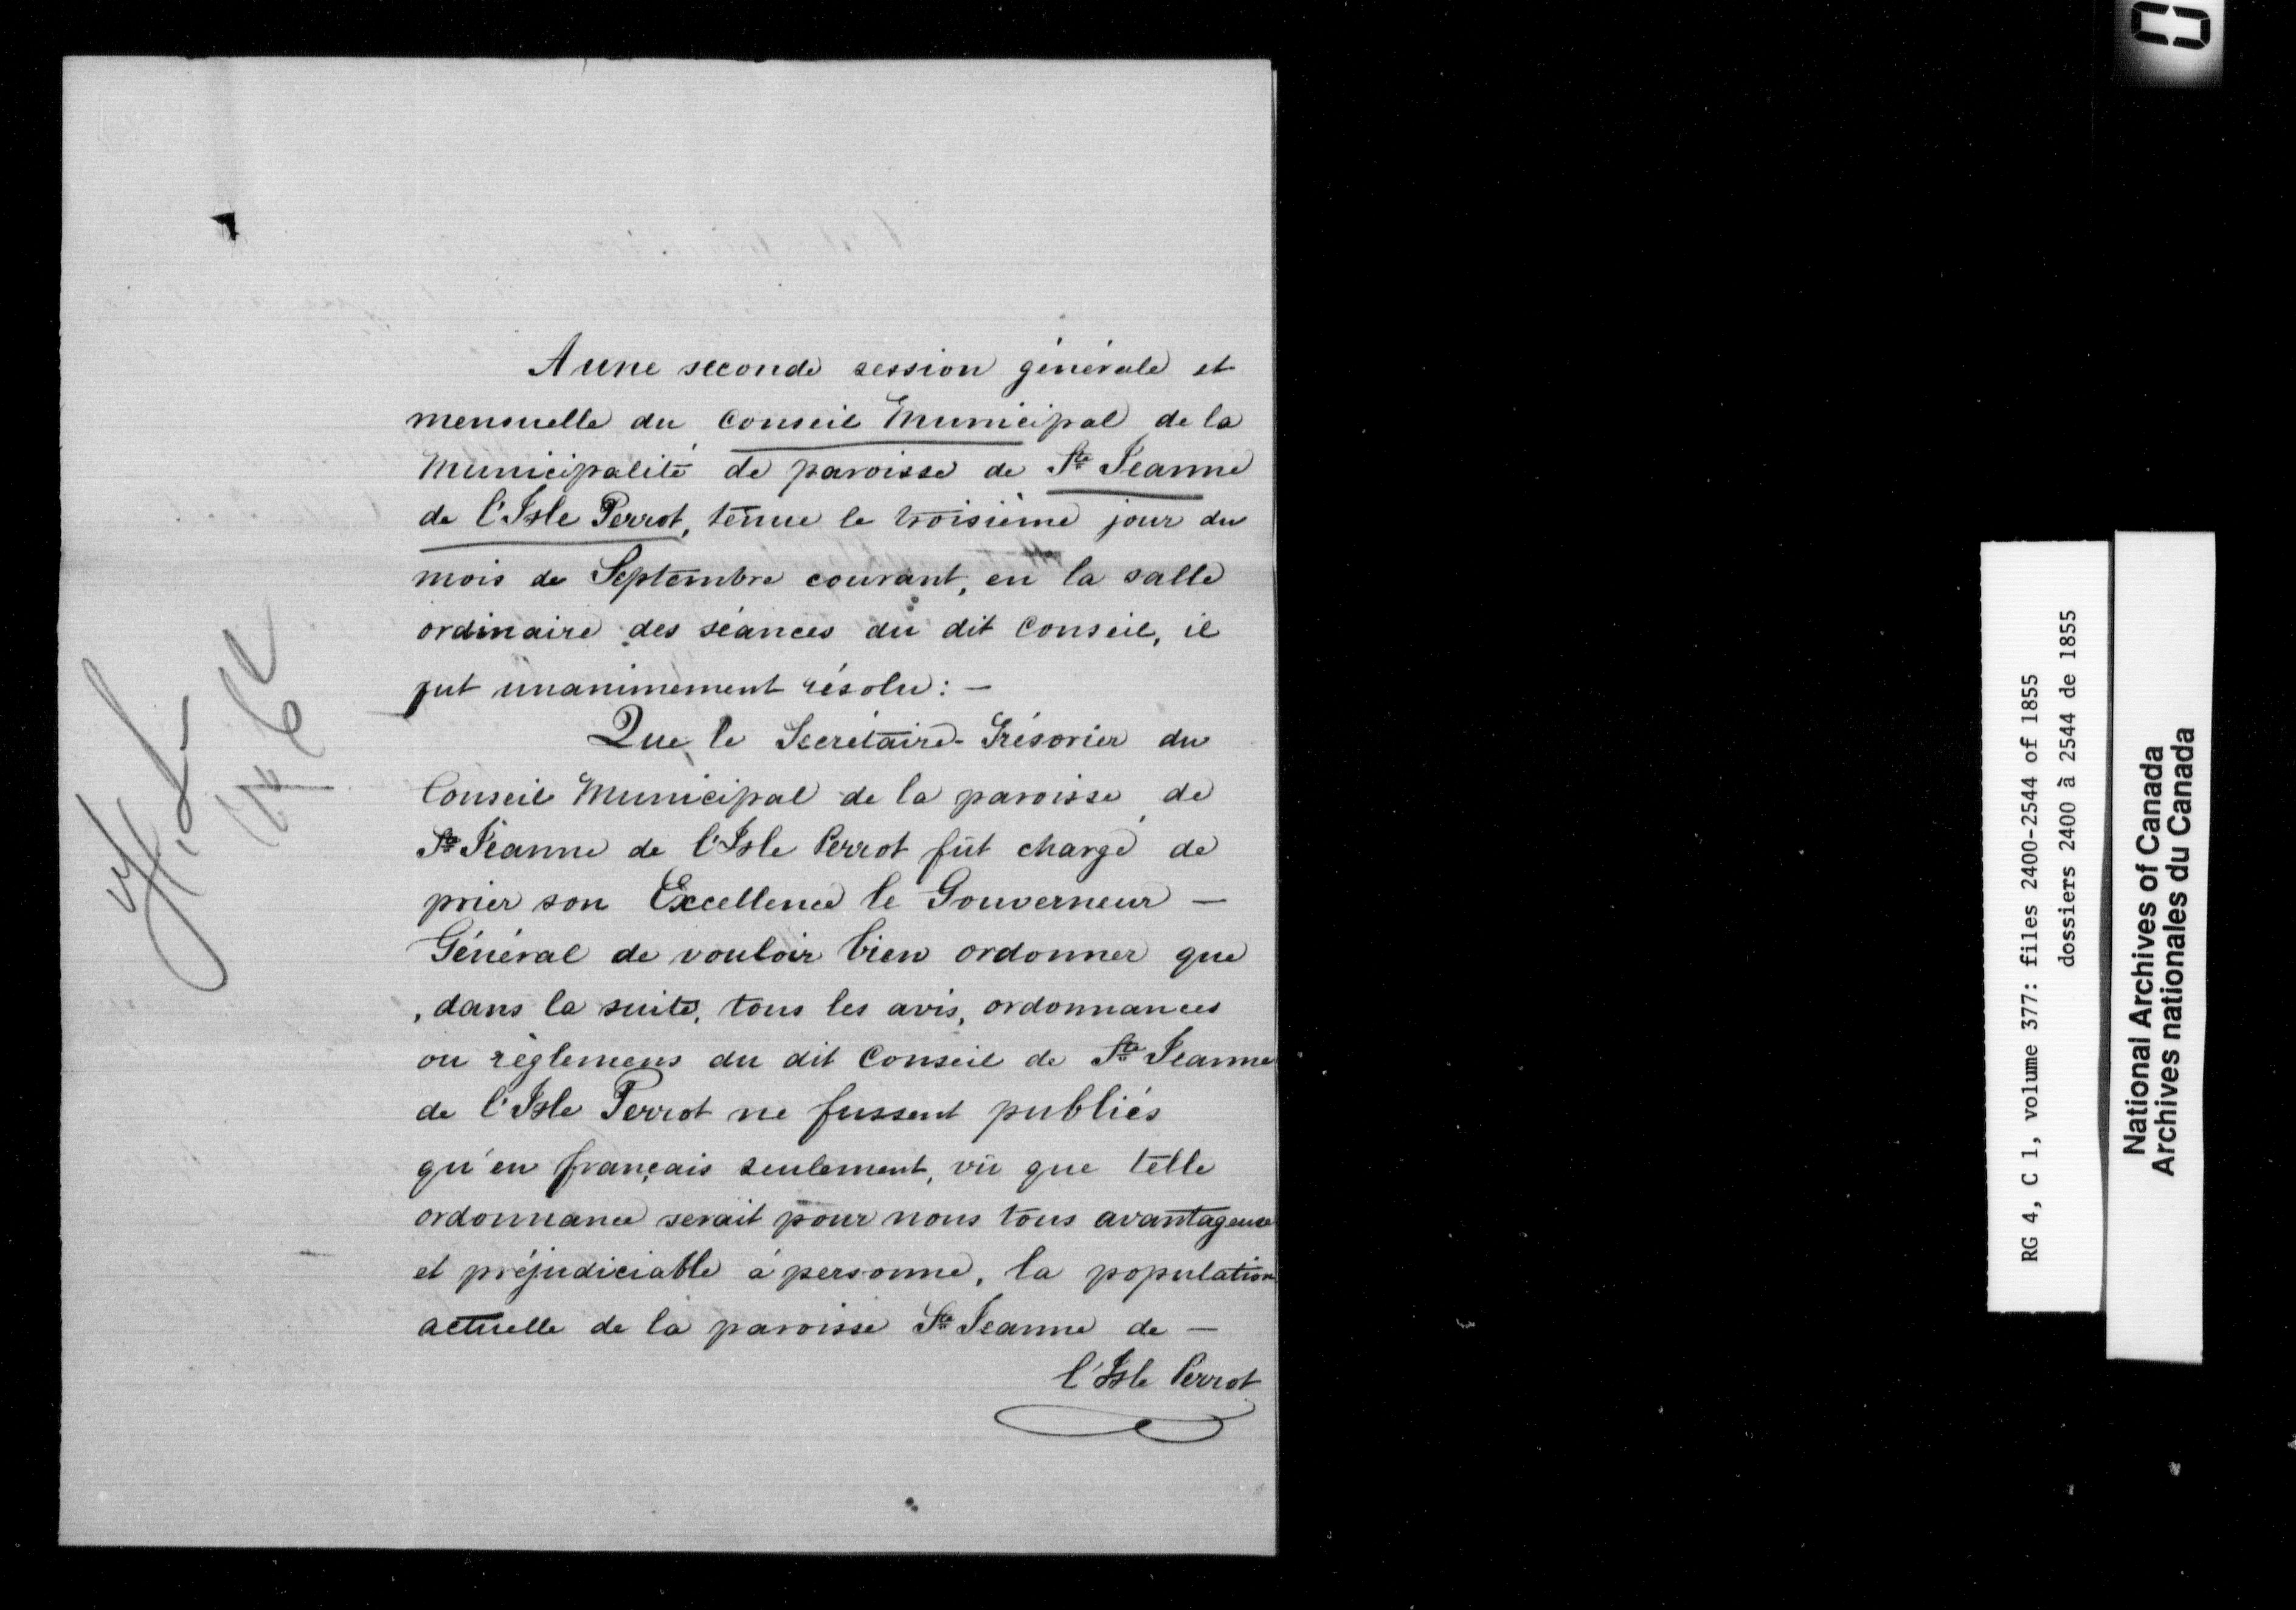 A une seconde session générale et
mensuelle du Conseil Municipal de la
Municipalité de paroisse de Ste Jeanne
de l'Isle Perrot, tenue le troisième jour du
mois de Septembre courant, en la salle
ordinaire des séances du dit Conseil, il
fut unanimement résolu : —
Que le Secrétaire-Trésorier du
Conseil Municipal de la paroisse de
Ste Jeanne de l'Isle Perrot fût chargé de
prier son Excellence le Gouverneur —
Général de vouloir bien ordonner que
, dans la suite, tous les avis, ordonnances
ou règlemens du dit Conseil de Ste Jeanne
de l'Isle Perrot ne fussent publiés
qu'en français seulement, vû que telle
ordonnance serait pour nous tous avantageuse
et préjudiciable à personne, la population
actuelle de la paroisse Ste Jeanne de —
l'Isle Perrot
RG 4, C 1, volume 377: files 2400-2544 of 1855
dossiers 2400 à 2544 de 1855
National Archives of Canada
Archives nationales du Canada